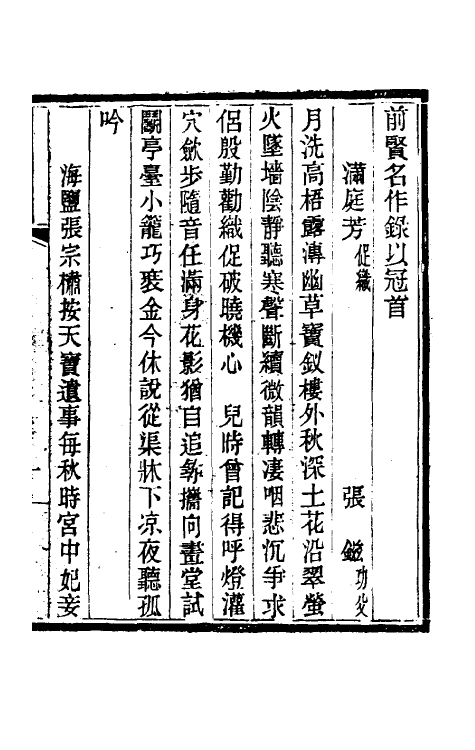 前賢名作錄以冠首
滿庭芳促織　張鎡功父
月洗高梧露漙幽草寶釵樓外秋深土花沿翠螢
火墜墻陰靜聽寒聲斷續微韻轉淒咽悲沉爭求
侶殷勤勸織促破曉機心　兒時曾記得呼燈灌
穴斂步隨音任滿身花影猶自追尋攜向畫堂試
鬬亭臺小籠巧裝金今休說從渠牀下凉夜聽孤
吟
海鹽張宗橚按天寶遺事每秋時宮中妃妾